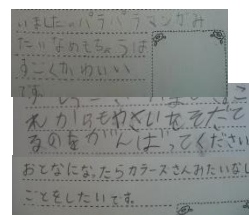 いました。バラバラマンがみ
たいなめもちゃうは
すごくかわいい
です
れからもやさいをそだて
るのをがんばってください
おとなになったらカラーズさんみたいなし
ごとをしたいです。